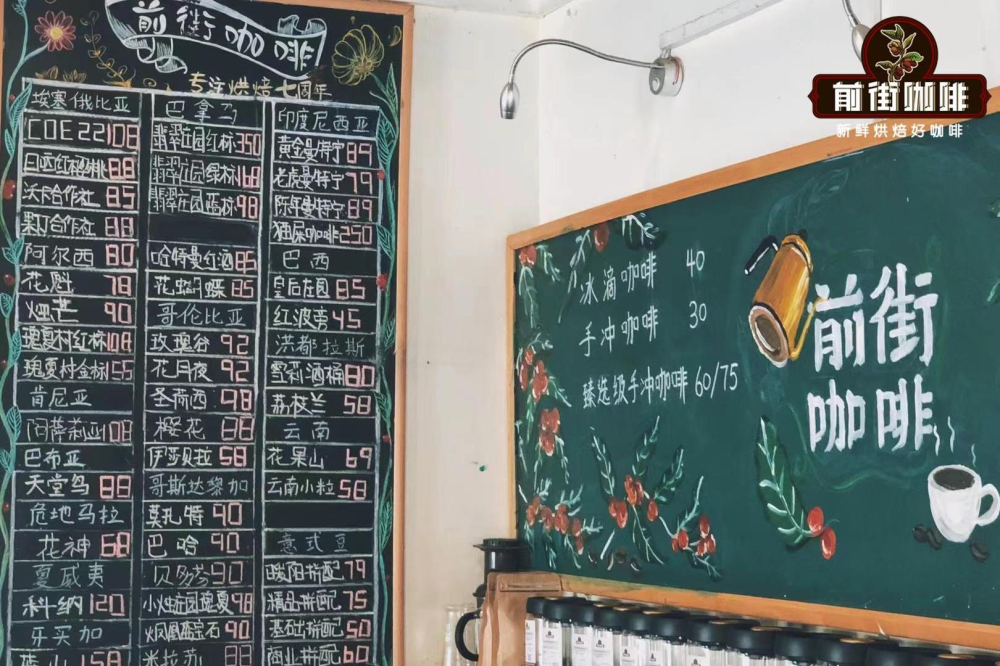 前街咖啡
专注烘焙七周年
埃塞俄比亚
COE22 108
日晒红樱桃 88
沃卡合作社 85
果丁合作社 88
阿尔西 80
花魁 78
烛芒 90
瑰夏村红标 108
瑰夏村金标 155
肯尼亚
阿萨莉亚 108
巴布亚
天堂鸟 88
危地马拉
花神 68
夏威夷
科纳 120
牙买加
158
巴拿马
翡翠庄园红标 350
翡翠庄园绿标 168
翡翠庄园蓝标 98
哈特曼红酒 85
花蝴蝶 85
哥伦比亚
玫瑰谷 92
花月夜 92
圣荷西 98
樱花 88
伊莎贝拉 58
哥斯达黎加
莫扎特 90
巴哈 90
贝多芬 90
小烛庄园瑰夏 98
火凤凰蓝宝石 90
米拉苏 88
印度尼西亚
黄金曼特宁 89
老虎曼特宁 79
陈年曼特宁 89
猫屎咖啡 250
巴西
皇后庄园 85
红波旁 45
洪都拉斯
雪莉酒桶 80
荔枝兰 58
云南
花果山 69
云南小粒 58
意式豆
暖阳拼配 79
精品拼配 75
基础拼配 50
商业拼配 60
冰滴咖啡 40
手冲咖啡 30
臻选级手冲咖啡 60/75
前街
咖啡
前街咖啡
新鲜烘焙好咖啡